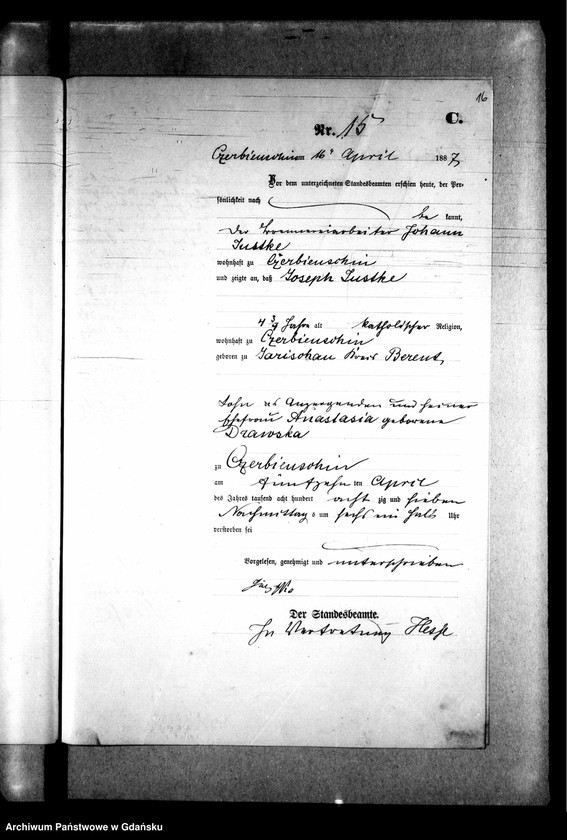 16
C.
Nr. 15
Czerbienschin am 16. April 1887
Vor dem unterzeichneten Standesbeamten erschien heute, der Per-
sönlichkeit nach
be kannt,
der Brennereiarbeiter Johann
Justke
wohnhaft zu Czerbienschin
und zeigte an, daß Joseph Justke
4 3/9 Jahre alt katholischer Religion,
wohnhaft zu Czerbienschin
geboren zu Jarischau Kreis Berent,
Sohn des Anzeigenden und seiner
Ehefrau Anastasia geborene
Drawska
zu Czerbienschin
am fünfzehn ten April
des Jahres tausend acht hundert acht zig und sieben
Nachmittag s um sechs ein halb Uhr
verstorben sei
Vorgelesen, genehmigt und unterschrieben
Der Standesbeamte.
In Vertretung Hesse
Archiwum Państwowe w Gdańsku